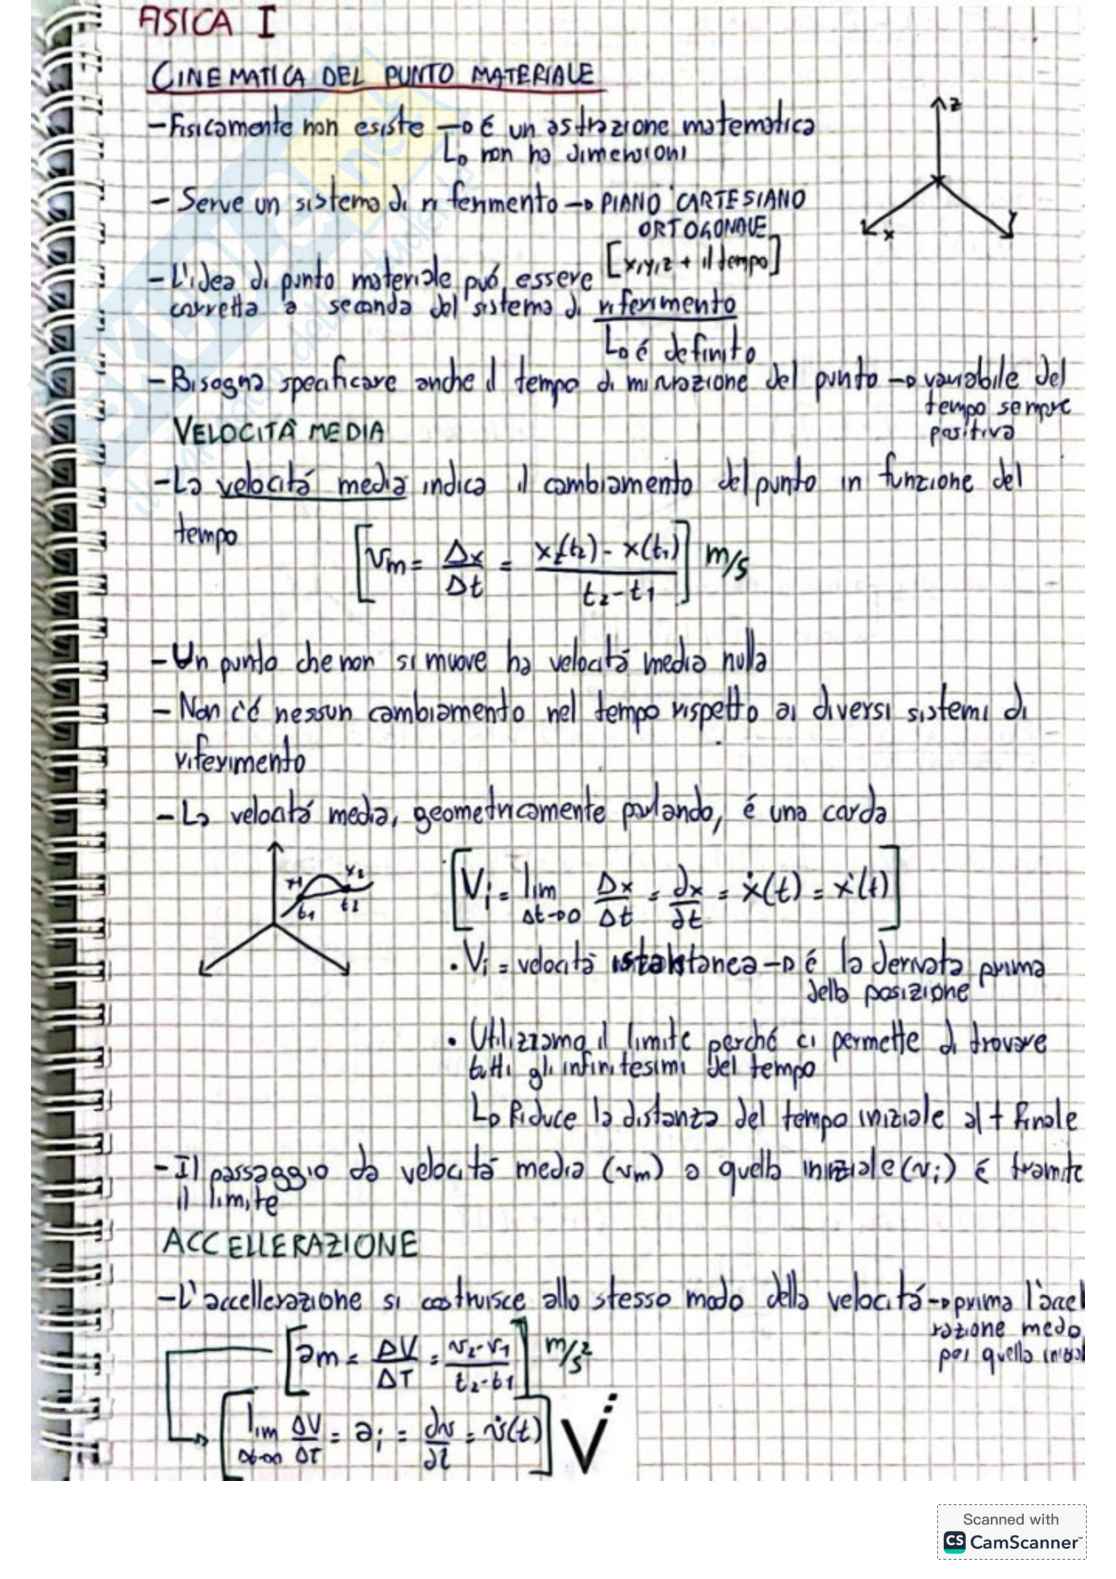 FISICA I
CINEMATICA DEL PUNTO MATERIALE
- Fisicamente non esiste → é un astrazione matematica
↳ non ha dimensioni
z
x
y
- Serve un sistema di riferimento → PIANO CARTESIANO
ORTOGONALE
[x,y,z + il tempo]
- L'idea di punto materiale può essere
corretta a seconda del sistema di riferimento
↳ é definito
- Bisogna specificare anche il tempo di misurazione del punto → variabile del
tempo sempre
positiva
VELOCITÁ MEDIA
- La velocitá media indica il cambiamento del punto in funzione del
tempo
[Vm = Δx/Δt = x(t2) - x(t1) / t2 - t1] m/s
- Un punto che non si muove ha velocitá media nulla
- Non c'é nessun cambiamento nel tempo rispetto ai diversi sistemi di
riferimento
- La velocitá media, geometricamente parlando, é una corda
t1
t2
[Vi = lim Δt→0 Δx/Δt = dx/dt = ẋ(t) = x'(t)]
• Vi = velocitá istantanea → é la derivata prima
della posizione
• Utilizziamo il limite perché ci permette di trovare
tutti gli infinitesimi del tempo
↳ Riduce la distanza del tempo iniziale al t finale
- Il passaggio da velocitá media (vm) a quella iniziale (vi) é tramite
il limite
ACCELLERAZIONE
- L'accellerazione si costruisce allo stesso modo della velocitá → prima l'accel
razione media
poi quella
[am = ΔV/ΔT = v2-v1 / t2-t1] m/s²
[lim Δt→0 ΔV/ΔT = ai = dv/dt = v̇(t)] V
Scanned with
CS CamScanner